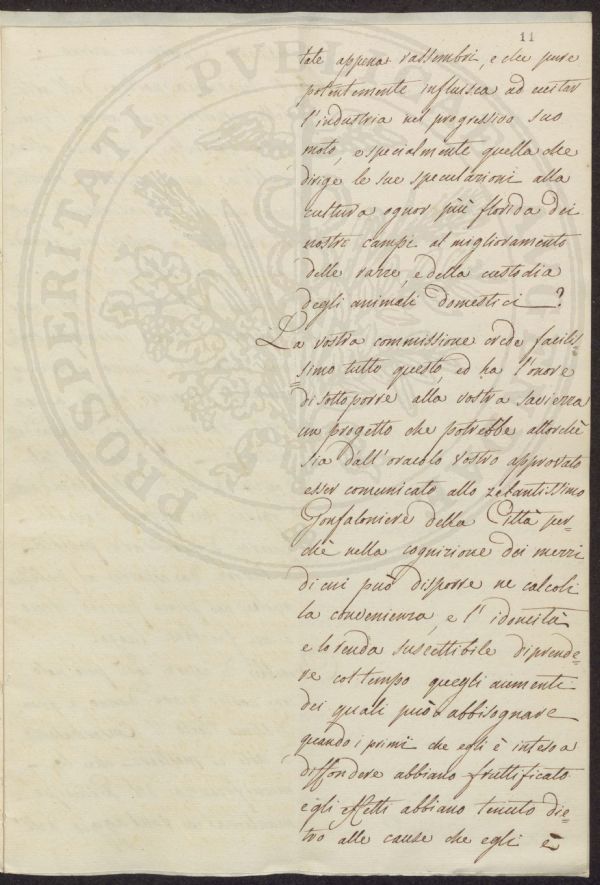 11
tale appena rassembri, e che pure
potentemente influisca ad eccitar
l'industria nel progressivo suo
moto, e specialmente quella che
dirige le sue speculazioni alla
cultura ognor più florida dei
nostri campi al miglioramento
delle razze, e della custodia
degli animali domestici?
La vostra commissione crede facilis=
=simo tutto questo, ed ha l'onore
di sottoporre alla vostra saviezza
un progetto che potrebbe allorchè
sia dall'oracolo vostro approvato
esser comunicato allo zelantissimo
Gonfaloniere della Città per=
chè nella cognizione dei mezzi
di cui può disporre ne calcoli
la convenienza, e l'idoneità
e lo renda suscettibile di prende=
re col tempo quegli aumenti
dei quali può abbisognare
quando i primi che egli è inteso a
diffondere abbiano fruttificato
e gli effetti abbiano tenuto die=
tro alle cause che egli è
PROSPERITATI PVBLICAE